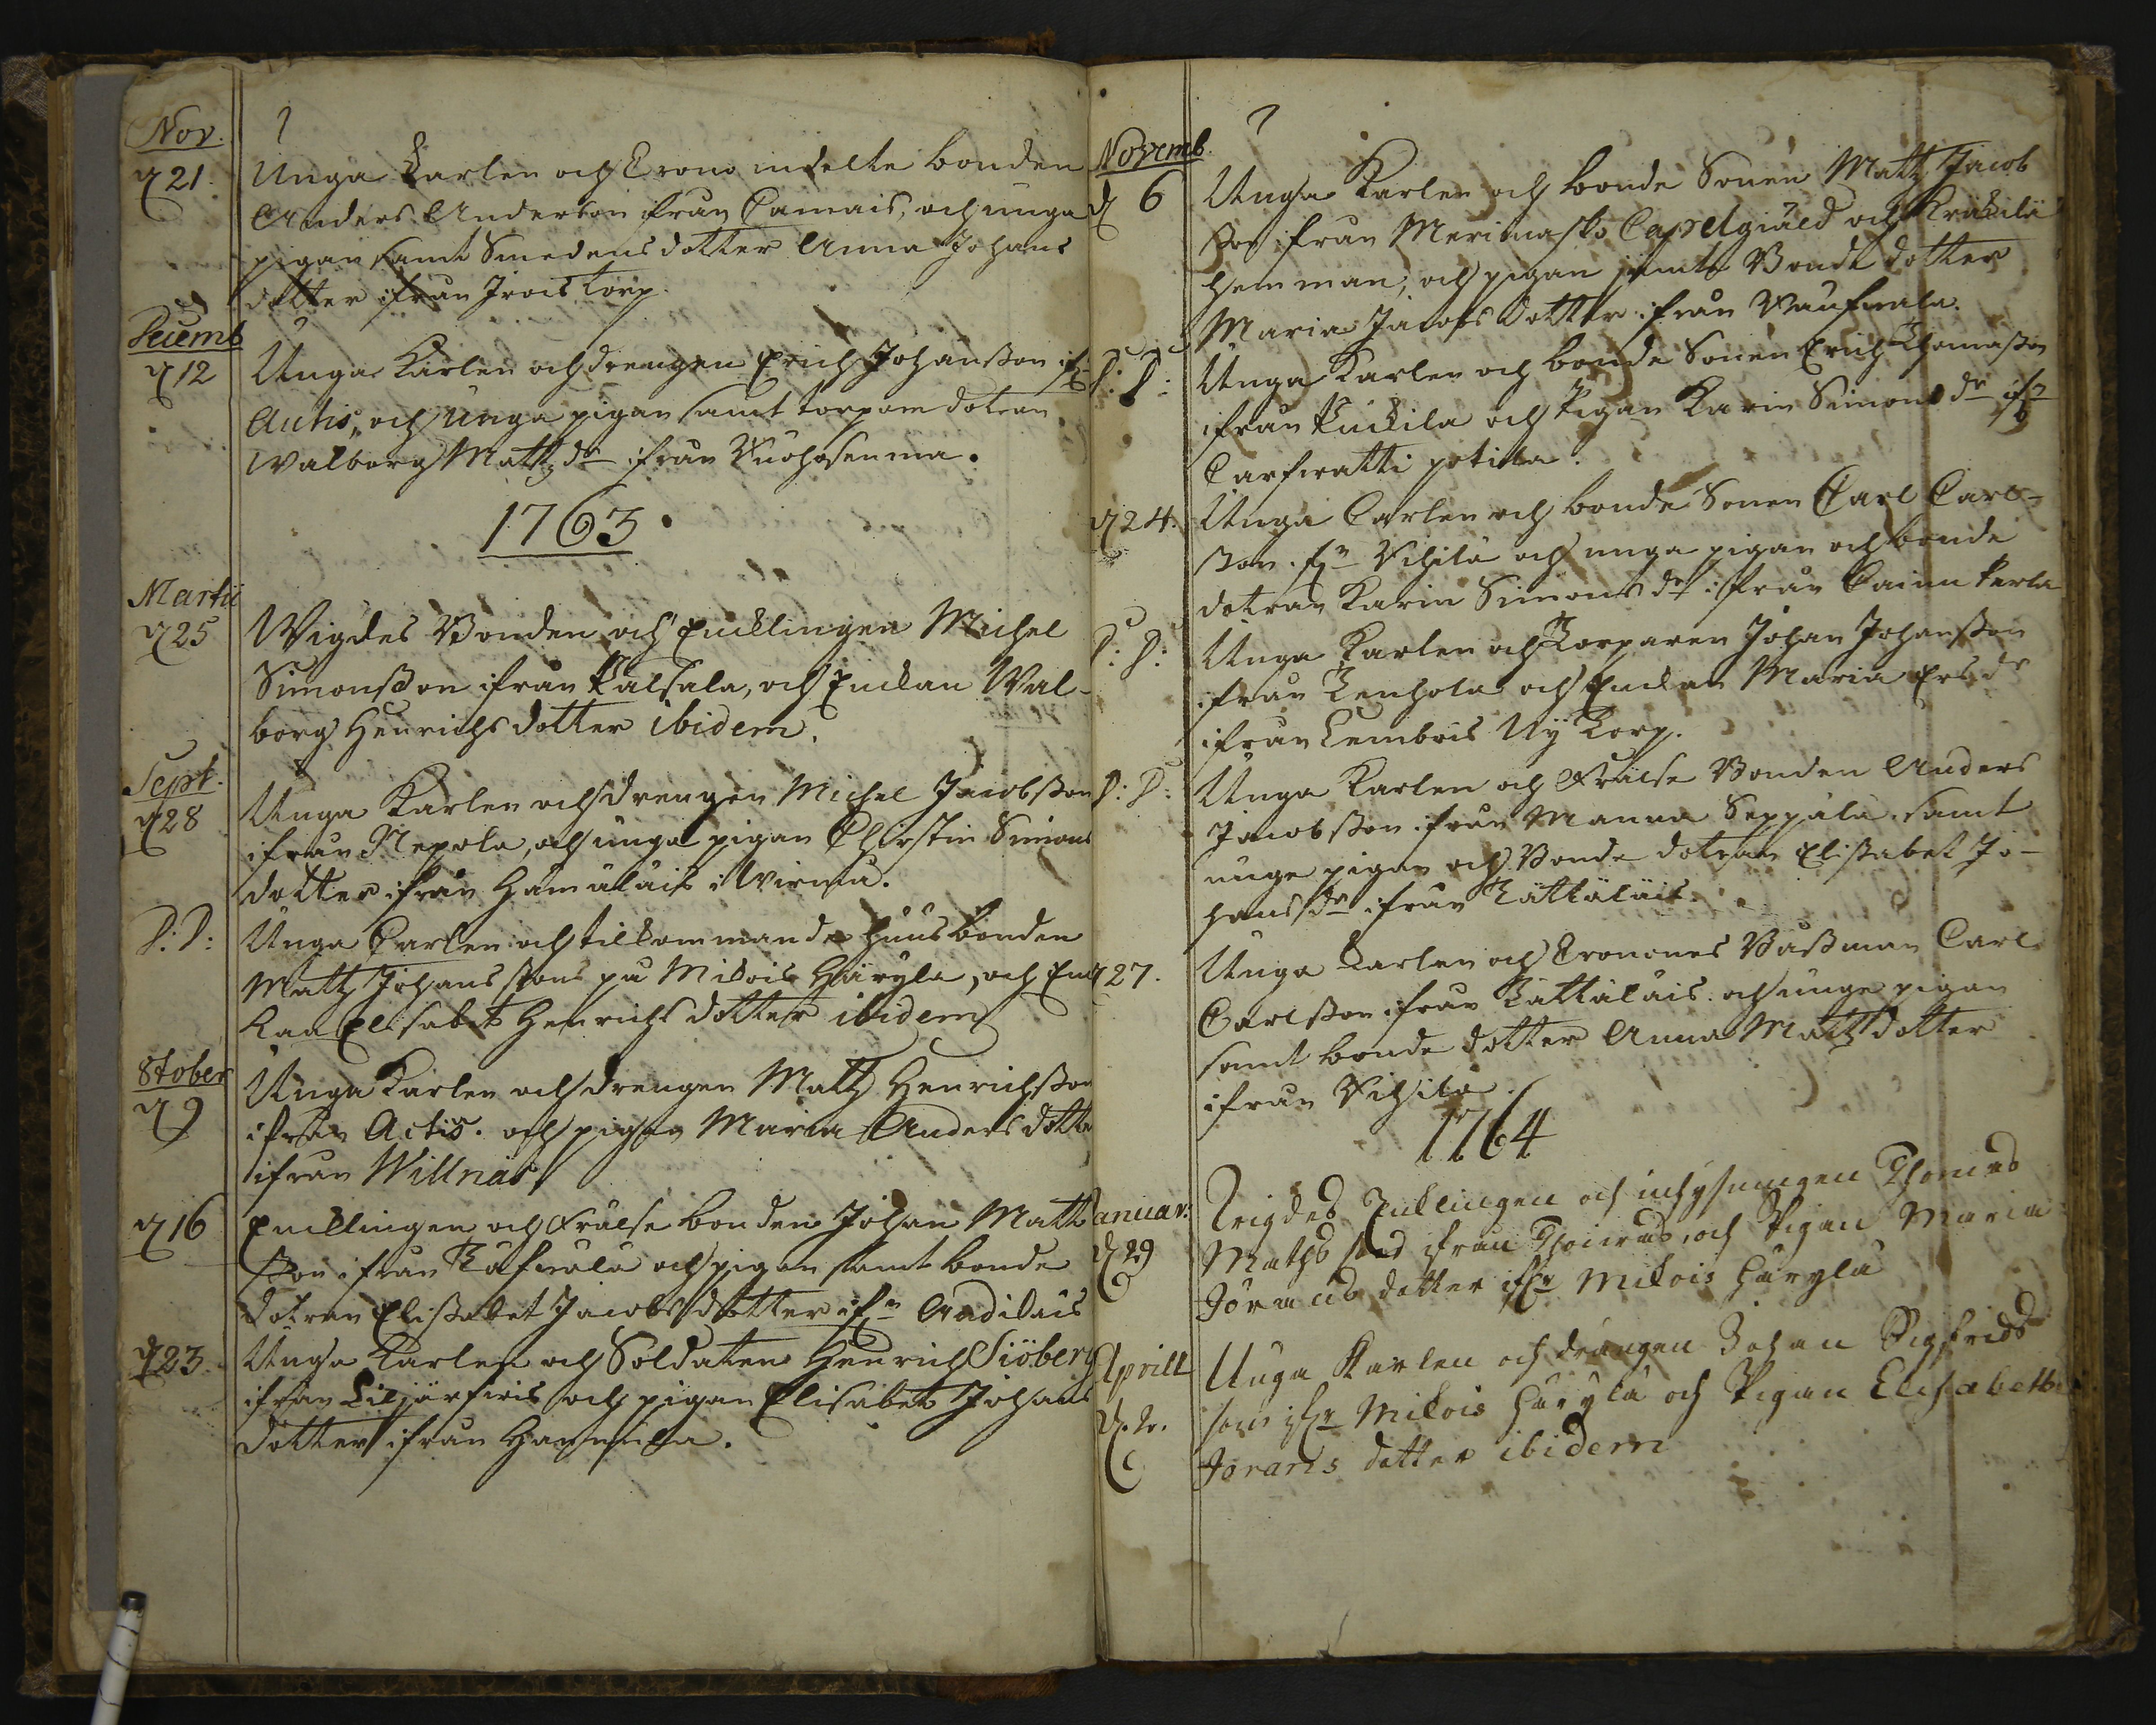 Nov.
d 21. Unga Karlen och Crono indelte bonden
Anders Anderson ifrån Camais, och unga
pigan samt Smedens dotter Anna Johans
dotter ifrån Irois torp.
Decemb
d 12 Unga Karlen och drengen Erich Johansson ifn
Autis, och unga pigan samt torpare dotran
Walborg Mattz dr ifrån Kuohosenma.
1763.
Martii
d 25 Wigdes Bonden och Encklingen Michel
Simonsson ifrån Kalsala, och Enckan Wal-
borg Henrichs dotter ibidem.
Sept.
d 28 Unga Karlen och drengen Michel Jacobsson
ifrån Nepola, och unga pigan Christin Simons
dotter ifrån Hämäläis i Wirmo.
D: D: Unga Carlen och tilkommande husbonden
Mattz Johanssons på Mikois Häryla, och Enc
kan Elisabet Henrichs dotter ibidem
8tober
d 9 Unga Karlen och drengen Mattz Henrichsson
ifrån Actis. och pigan Maria Anders dotte
ifrån Willnäs
d 16 Encklingen och Frälse bonden Johan Matts
sson ifrån och pigan samt bonde
dotran Elissabet Jacobs dotter ifn
d 23. Unga Karlen och Soldaten Henrich Siöberg
ifrån och pigan Elisabet Johans
dotter ifrån Hannula.
Novemb
d 6 Unga Karlen och bonde Sonen Mattz Jacob
sson ifrån Merimasko Capelgiäld och Krakila
hemman, och pigan samt Bonde dotter
Maria Jacobs dotter ifrån
D: D: Unga Karlen och bonde Sonen Erich Thomasson
ifrån Kuckila och Pigan Karin Simons dr ifn
d 24. Unga Carlen och bonde Sonen Carl Carl-
sson. fn Vihilä och unga pigan och bonde
dotran Karin Simons dr ifrån Cainu Karla
D: D: Unga Karlen och Torparen Johan Johansson
ifrån Kenhola och Enckan Maria Ers dr
ifrån Lembois Ny Torp.
D: D: Unga Karlen och Frälse Bonden Anders
Jacobsson ifrån Manna Seppälä. samt
unge pigan och Bonde dotran Elissabet Jo-
hans dr ifrån Kättäläis
d 27. Unga Karlen och Cronones Båssman Carl
Carlsson ifrån Kättäläis. och unge pigan
samt bonde dotter Anna Mattz dotter
ifrån Vihilä
1764
Januar: Wigdes Enklingen och inhysningen Thomas
d 29 Maths son ifrån och Pigan Maria
Jörans dotter ifr Mikois Häryla
Aprill Unga Karlen och drängen Johan Sigfrids
d. 2. son ifr Mikois Häryla och Pigan Elisabeth
Jorans dotter ibidem